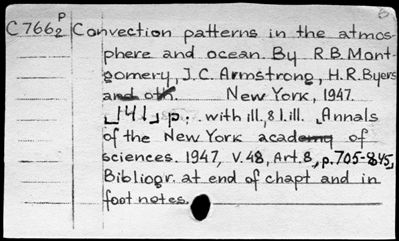 C766 P2 Convection patterns in the atmos-
phere and ocean. By R.B. Mont-
gomery, J.C. Armstrong, H.R. Byers
and oth. New York, 1947.
141 p. with ill., 8 l. ill. Annals
of the New York academy of
sciences. 1947, V. 48, Art. 8, p. 705-845,
Bibliogr. at end of chapt and in
foot notes.